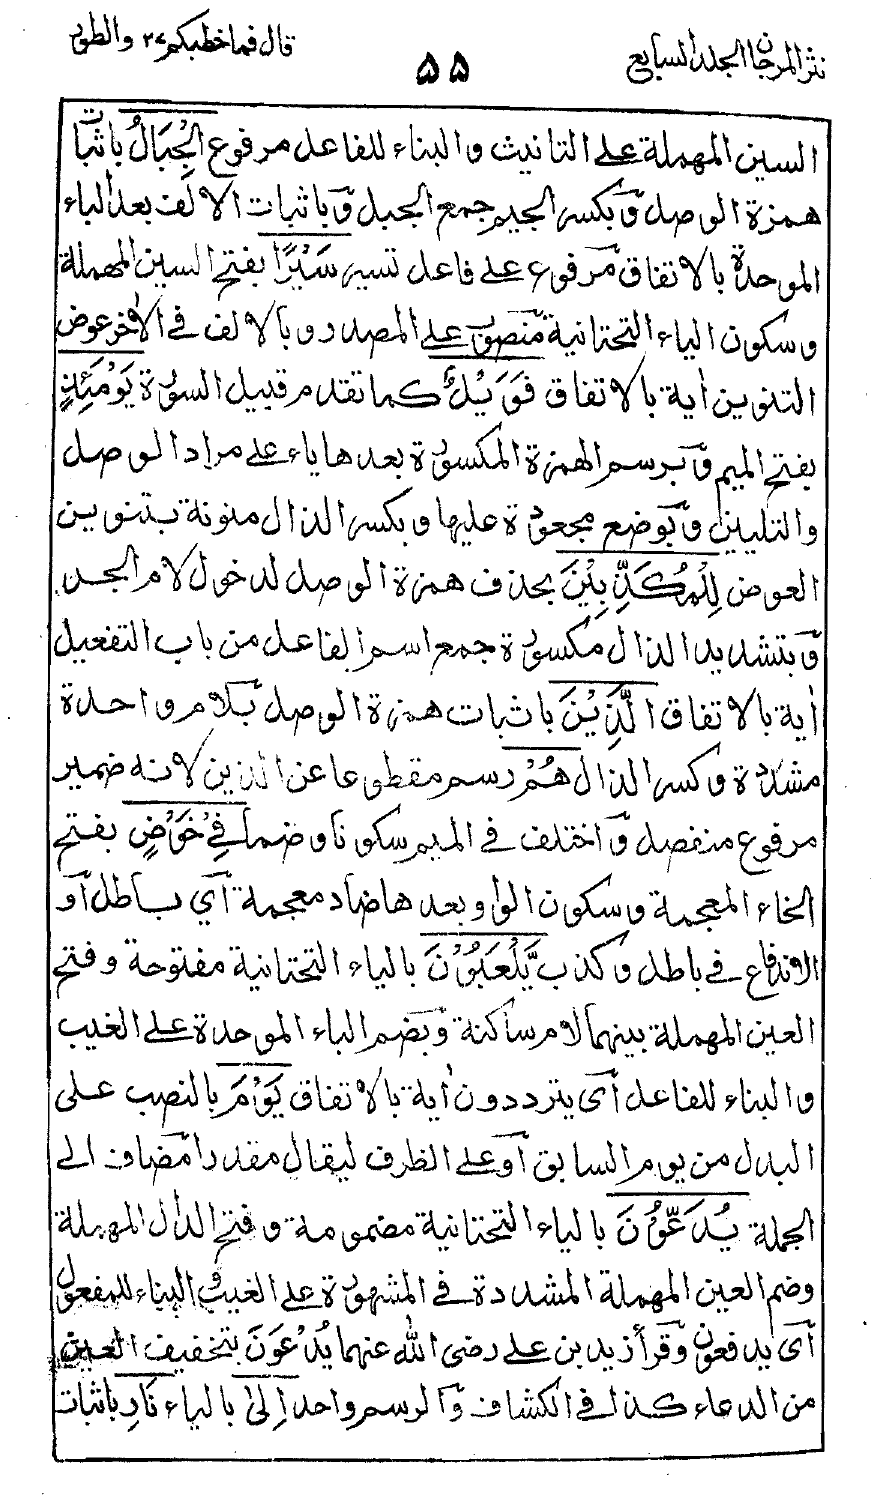 نثر المرجان الجلد السابع
۵۵
قال فما خطبكم ۲۷ والطور
السين المهملة على التانيث والبناء للفاعل مرفوع الْجِبَالُ باثبات
همزة الوصل وبكسر الجيم جمع الجبل وباثبات الالف بعد الباء
الموحدة بالاتفاق مرفوع على فاعل تسير سَيْرًا بفتح السين المهملة
وسكون الياء التحتانية منصوب على المصدر وبالالف في الاخر عوض
التنوين اٰية بالاتفاق فَوَيْلٌ كما تقدم قبيل السورة يَوْمَئِذٍ
بفتح الميم وبرسم الهمزة المكسورة بعدها ياء على مراد الوصل
والتليين وبوضع مجعودة عليها وبكسر الذال منونة بتنوين
العوض لِلْمُكَذِّبِيْنَ بحذف همزة الوصل لدخول لام الجر
وبتشديد الذال مكسورة جمع اسم الفاعل من باب التفعيل
اٰية بالاتفاق الَّذِيْنَ باثبات همزة الوصل بلام واحدة
مشددة وكسر الذال هُمْ رسم مقطوعا عن الذين لانه ضمير
مرفوع منفصل واختلف في الميم سكونا وضما فِيْ خَوْضٍ بفتح
الخاء المعجمة وسكون الواو بعدها ضاد معجمة اي باطل او
الاندفاع في باطل وكذب يَّلْعَبُوْنَ بالياء التحتانية مفتوحة وفتح
العين المهملة بينهما لام ساكنة وبضم الباء الموحدة على الغيب
والبناء للفاعل اى يترددون اٰية بالاتفاق يَوْمَ بالنصب على
البدل من يوم السابق او على الظرف ليقال مقدرا مضاف الى
الجملة يُدَعُّوْنَ بالياء التحتانية مضمومة وفتح الدال المهملة
وضم العين المهملة المشددة في المشهورة على الغيب والبناء للمفعول
اى يدفعون وقرأ زيد بن على رضى الله عنهما يُدْعَوْنَ بتخفيف العين
من الدعاء كذا في الكشاف والرسم واحد اِلىٰ بالياء نَارِ باثبات